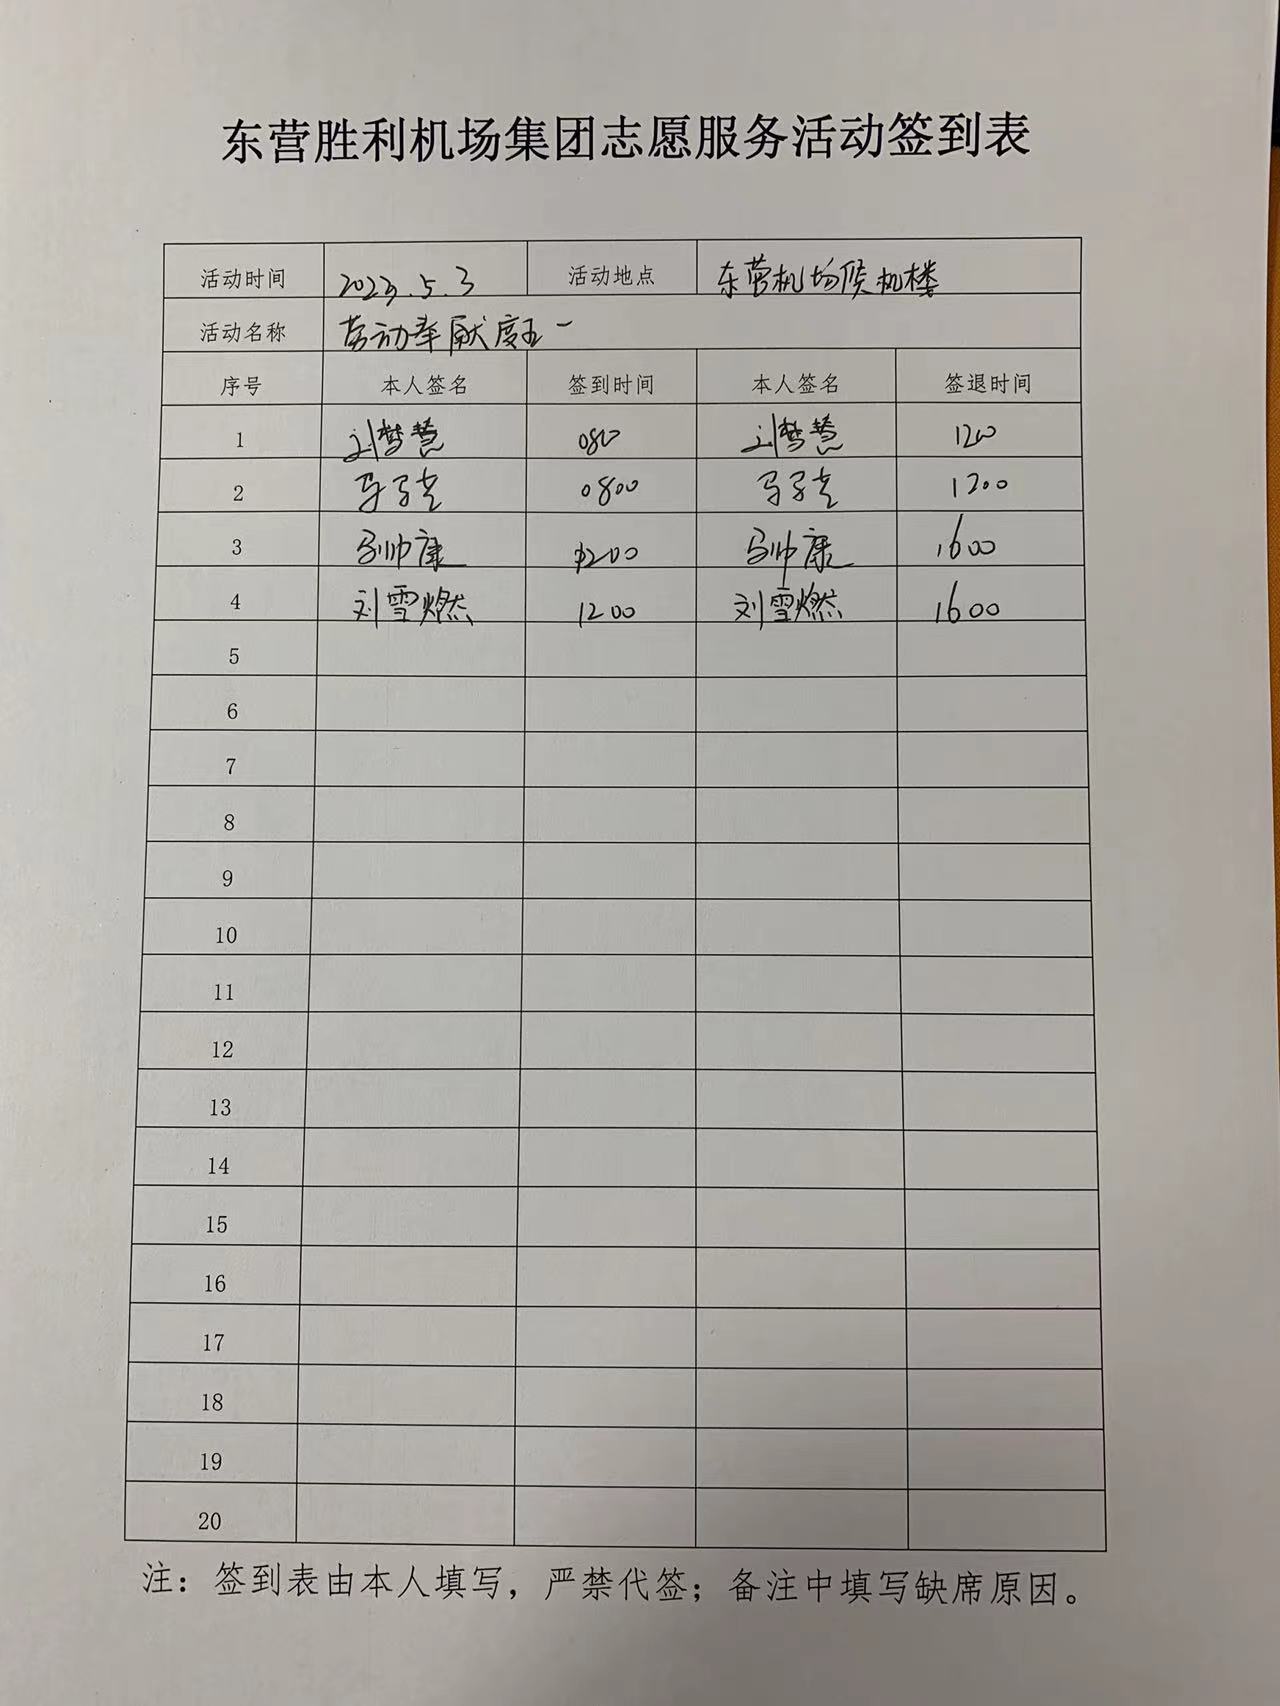 东营胜利机场集团志愿服务活动签到表
活动时间 2023.5.3 活动地点 东营机场候机楼
活动名称 劳动奉献度五一
序号 本人签名 签到时间 本人签名 签退时间
1 刘梦慧 0800 刘梦慧 1200
2 0800 1200
3 马帅康 1200 马帅康 1600
4 刘雪燃 1200 刘雪燃 1600
5
6
7
8
9
10
11
12
13
14
15
16
17
18
19
20
注：签到表由本人填写，严禁代签；备注中填写缺席原因。